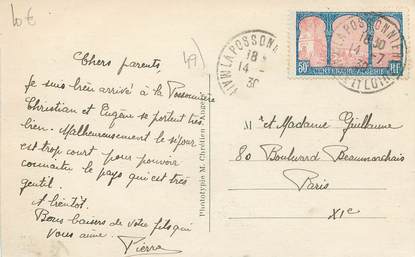 10 €
49)
Chers parents,
Je suis bien arrivé à la Possonnière
Christian et Eugène se portent très
bien. Malheureusement le séjour
est trop court pour pouvoir
connaître le pays qui est très
gentil.
A bientôt.
Bons baisers de votre fils qui
vous aime. Pierre
Phototypie M. Chrétien - Angers
LA POSSONNIÈRE
18
14 -
30
LA POSSONNIÈRE
1830
14 -7
30
Mne et LOIRE
50c CENTENAIRE ALGERIE RF
Mr et Madame Guillaume
80 Boulevard Beaumarchais
Paris
XIe